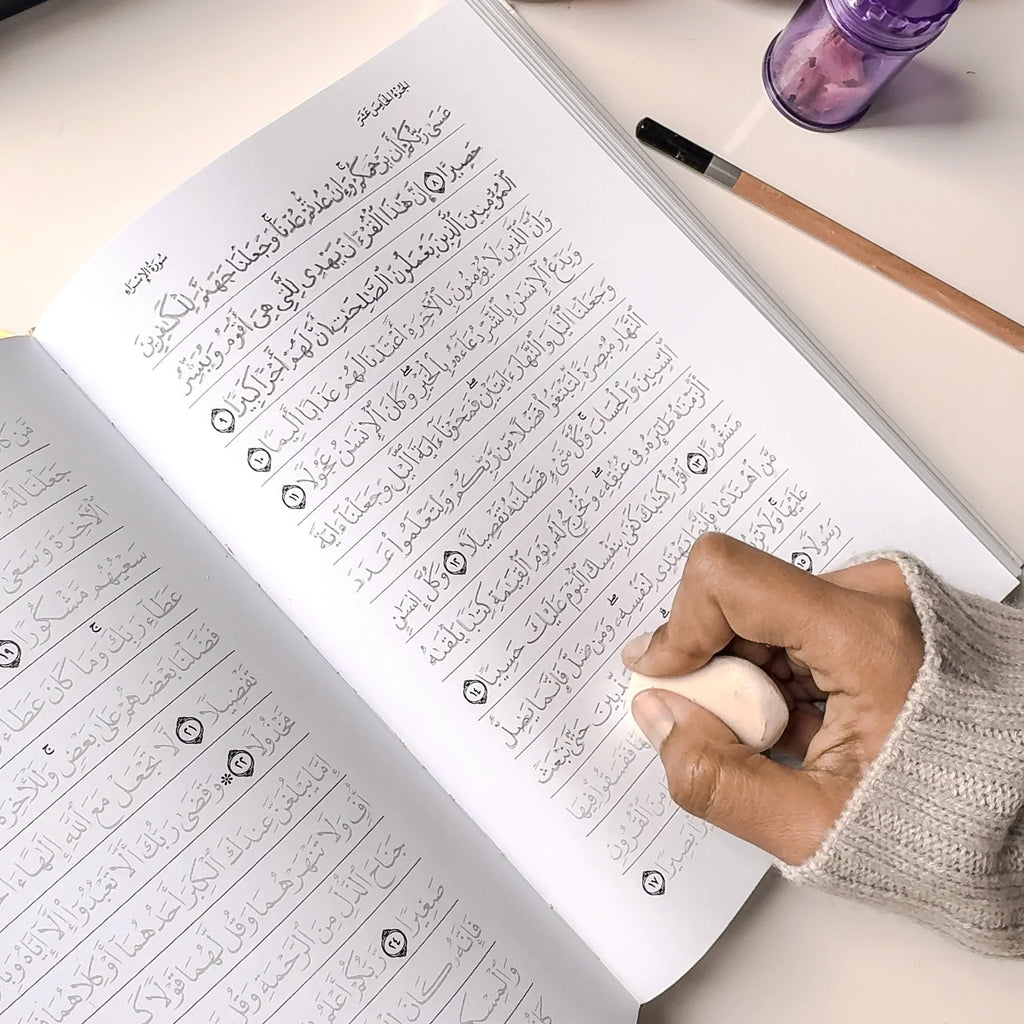 الجزء الخامس عشر
سورة الإسراء
عَسَىٰ رَبُّكُمْ أَن يَرْحَمَكُمْ ۚ وَإِنْ عُدتُّمْ عُدْنَا ۘ وَجَعَلْنَا جَهَنَّمَ لِلْكَـٰفِرِينَ
حَصِيرًا ٨ إِنَّ هَـٰذَا ٱلْقُرْءَانَ يَهْدِى لِلَّتِى هِىَ أَقْوَمُ وَيُبَشِّرُ
ٱلْمُؤْمِنِينَ ٱلَّذِينَ يَعْمَلُونَ ٱلصَّـٰلِحَـٰتِ أَنَّ لَهُمْ أَجْرًا كَبِيرًا ٩
وَأَنَّ ٱلَّذِينَ لَا يُؤْمِنُونَ بِٱلْـَٔاخِرَةِ أَعْتَدْنَا لَهُمْ عَذَابًا أَلِيمًا ١٠
وَيَدْعُ ٱلْإِنسَـٰنُ بِٱلشَّرِّ دُعَآءَهُۥ بِٱلْخَيْرِ ۖ وَكَانَ ٱلْإِنسَـٰنُ عَجُولًا ١١
وَجَعَلْنَا ٱلَّيْلَ وَٱلنَّهَارَ ءَايَتَيْنِ ۖ فَمَحَوْنَآ ءَايَةَ ٱلَّيْلِ وَجَعَلْنَآ ءَايَةَ
ٱلنَّهَارِ مُبْصِرَةً لِّتَبْتَغُوا۟ فَضْلًا مِّن رَّبِّكُمْ وَلِتَعْلَمُوا۟ عَدَدَ
ٱلسِّنِينَ وَٱلْحِسَابَ ۚ وَكُلَّ شَىْءٍ فَصَّلْنَـٰهُ تَفْصِيلًا ١٢ وَكُلَّ إِنسَـٰنٍ
أَلْزَمْنَـٰهُ طَـٰٓئِرَهُۥ فِى عُنُقِهِۦ ۖ وَنُخْرِجُ لَهُۥ يَوْمَ ٱلْقِيَـٰمَةِ كِتَـٰبًا يَلْقَىٰهُ
مَنشُورًا ١٣ ٱقْرَأْ كِتَـٰبَكَ كَفَىٰ بِنَفْسِكَ ٱلْيَوْمَ عَلَيْكَ حَسِيبًا ١٤
مَّنِ ٱهْتَدَىٰ فَإِنَّمَا يَهْتَدِى لِنَفْسِهِۦ ۖ وَمَن ضَلَّ فَإِنَّمَا يَضِلُّ
عَلَيْهَا ۚ وَلَا تَزِرُ حَتَّىٰ نَبْعَثَ
رَسُولًا ١٥ فَفَسَقُوا۟ فِيهَا
مِنَ ٱلْقُرُونِ
بَصِيرًا ١٧
مَّن
جَعَلْنَا لَهُۥ
ٱلْـَٔاخِرَةَ وَسَعَىٰ
سَعْيُهُم مَّشْكُورًا ١٩
عَطَآءِ رَبِّكَ ۚ وَمَا كَانَ عَطَآءُ
فَضَّلْنَا بَعْضَهُمْ عَلَىٰ بَعْضٍ ۚ وَلَلْـَٔاخِرَةُ
تَفْضِيلًا ٢١ لَّا تَجْعَلْ مَعَ ٱللَّهِ إِلَـٰهًا ءَاخَرَ
مَّخْذُولًا ٢٢ ۞ وَقَضَىٰ رَبُّكَ أَلَّا تَعْبُدُوٓا۟ إِلَّآ إِيَّاهُ
إِمَّا يَبْلُغَنَّ عِندَكَ ٱلْكِبَرَ أَحَدُهُمَآ أَوْ كِلَاهُمَا
أُفٍّ وَلَا تَنْهَرْهُمَا وَقُل لَّهُمَا قَوْلًا
جَنَاحَ ٱلذُّلِّ مِنَ ٱلرَّحْمَةِ وَقُل
صَغِيرًا ٢٤ رَّبُّكُمْ أَعْلَمُ
فَإِنَّهُۥ كَانَ